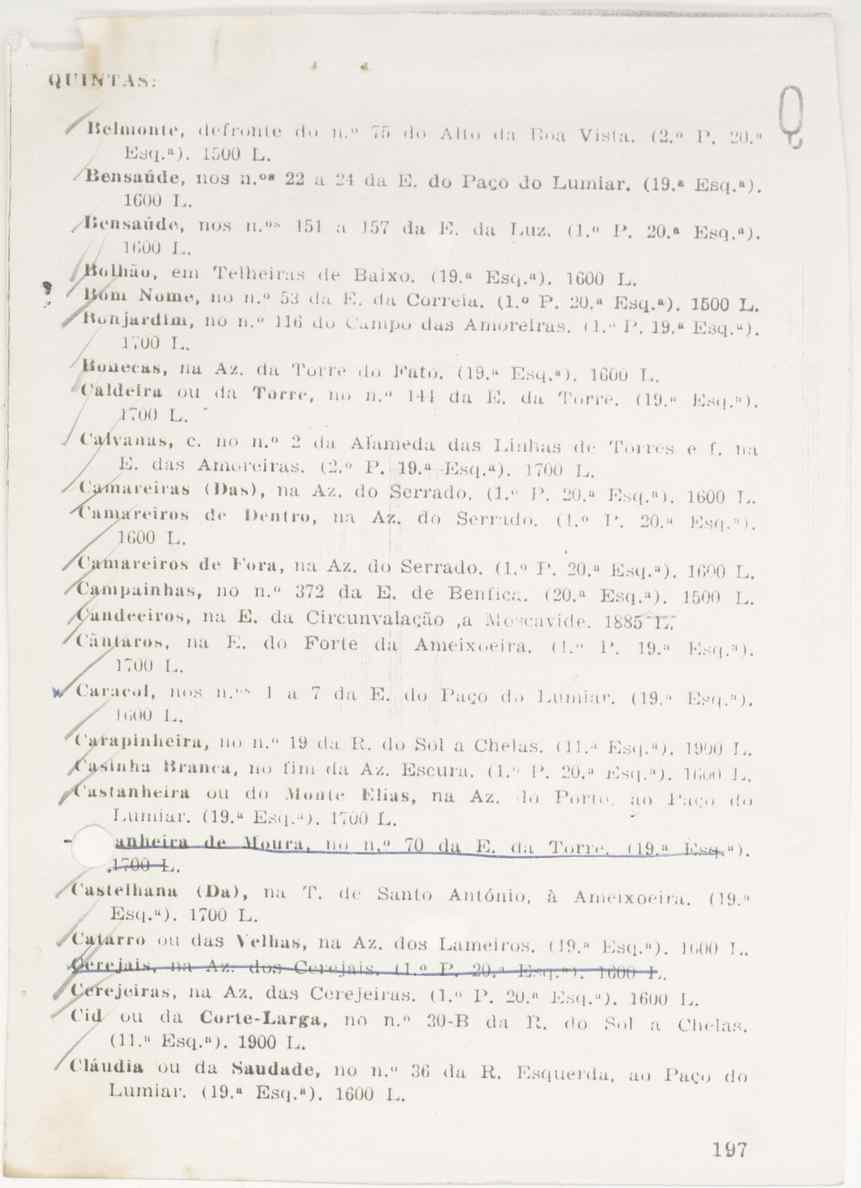 QUINTAS:
Q
Belmonte, defronte do n.º 75 do Alto da Boa Vista. (2.º P. 20.ª
Esq.ª). 1500 L.
Bensaúde, nos n.ºs 22 a 24 da E. do Paço do Lumiar. (19.ª Esq.ª).
1600 L.
Bensaúde, nos n.ºs 151 a 157 da E. da Luz. (1.º P. 20.ª Esq.ª).
1600 L.
Bolhão, em Telheiras de Baixo. (19.ª Esq.ª). 1600 L.
? Bom Nome, no n.º 53 da E. da Correia. (1.º P. 20.ª Esq.ª). 1500 L.
Bonjardim, no n.º 116 do Campo das Amoreiras. (1.º P. 19.ª Esq.ª).
1700 L.
Bonecas, na Az. da Torre do Fato. (19.ª Esq.ª). 1600 L.
Caldeira ou da Torre, no n.º 144 da E. da Torre. (19.ª Esq.ª).
1700 L.
Calvanas, c. no n.º 2 da Alameda das Linhas de Torres e f. na
E. das Amoreiras. (2.º P. 19.ª Esq.ª). 1700 L.
Camareiras (Das), na Az. do Serrado. (1.º P. 20.ª Esq.ª). 1600 L.
Camareiros de Dentro, na Az. do Serrado. (1.º P. 20.ª Esq.ª).
1600 L.
Camareiros de Fora, na Az. do Serrado. (1.º P. 20.ª Esq.ª). 1600 L.
Campainhas, no n.º 372 da E. de Benfica. (20.ª Esq.ª). 1500 L.
Candeeiros, na E. da Circunvalação ,a Moscavide. 1885 L.
Cântaros, na E. do Forte da Ameixoeira. (1.º P. 19.ª Esq.ª).
1700 L.
Caracol, nos n.ºs 1 a 7 da E. do Paço do Lumiar. (19.ª Esq.ª).
1600 L.
Carapinheira, no n.º 19 da R. do Sol a Chelas. (11.ª Esq.ª). 1900 L.
Casinha Branca, no fim da Az. Escura. (1.º P. 20.ª Esq.ª). 1600 L.
Castanheira ou do Monte Elias, na Az. do Porto, ao Paço do
Lumiar. (19.ª Esq.ª). 1700 L.
anheira de Moura, no n.º 70 da E. da Torre. (19.ª Esq.ª).
1700 L.
Castelhana (Da), na T. de Santo António, à Ameixoeira. (19.ª
Esq.ª). 1700 L.
Catarro ou das Velhas, na Az. dos Lameiros. (19.ª Esq.ª). 1600 L.
Cerejais, na Az. dos Cerejais. (1.º P. 20.ª Esq.ª). 1600 L.
Cerejeiras, na Az. das Cerejeiras. (1.º P. 20.ª Esq.ª). 1600 L.
Cid ou da Corte-Larga, no n.º 30-B da R. do Sol a Chelas.
(11.ª Esq.ª). 1900 L.
Cláudia ou da Saudade, no n.º 36 da R. Esquerda, ao Paço do
Lumiar. (19.ª Esq.ª). 1600 L.
197